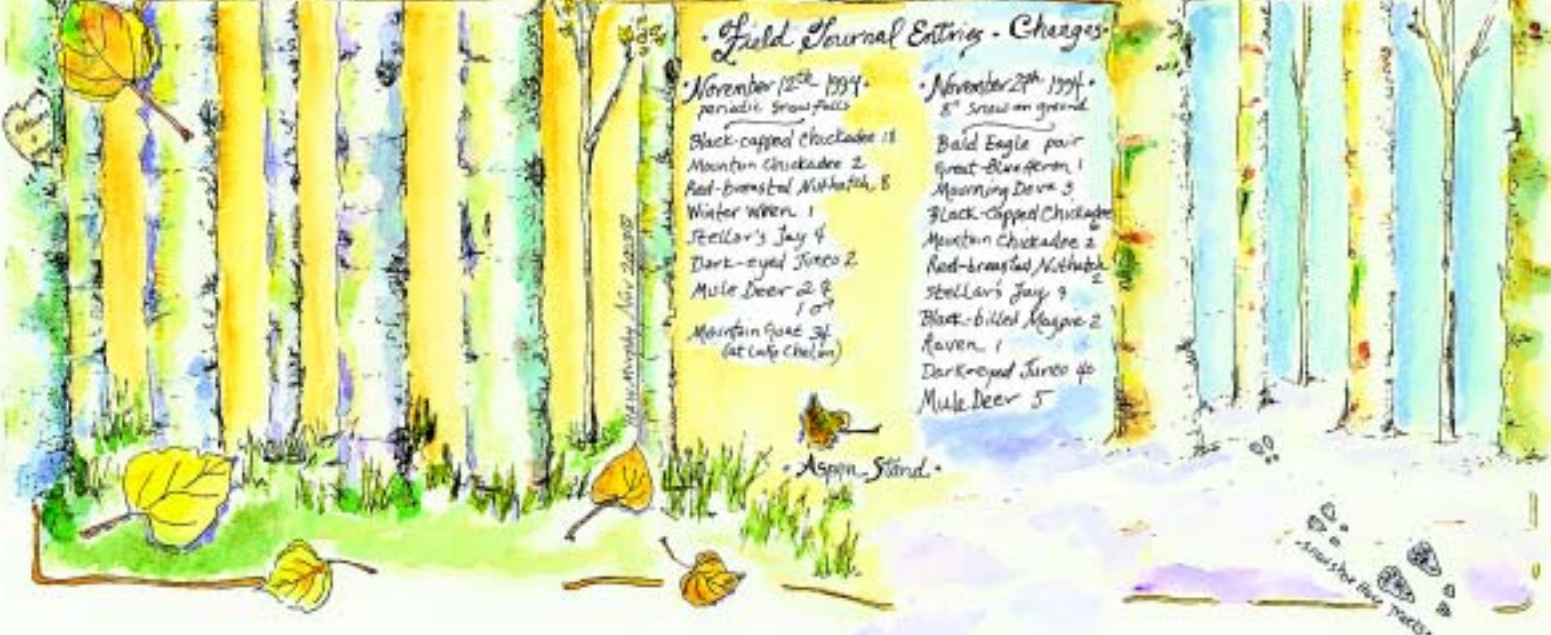 · Field Journal Entries - Changes ·
· November 12th 1994 ·
periodic snow falls
Black-capped Chickadee 18
Mountain Chickadee 2
Red-breasted Nuthatch 8
Winter Wren 1
Stellar's Jay 4
Dark-eyed Junco 2
Mule Deer 2 ♀
1 ♂
Mountain Goat 34
(at Lake Chelan)
· November 29th 1994 ·
8" snow on ground
Bald Eagle pair
Great-Blue Heron 1
Mourning Dove 3
Black-capped Chickadee
6
Mountain Chickadee 2
Red-breasted Nuthatch
2
Stellar's Jay 9
Black-billed Magpie 2
Raven 1
Dark-eyed Junco 40
Mule Deer 5
Murphy Nov 2000
· Aspen Stand ·
snowshoe hare tracks